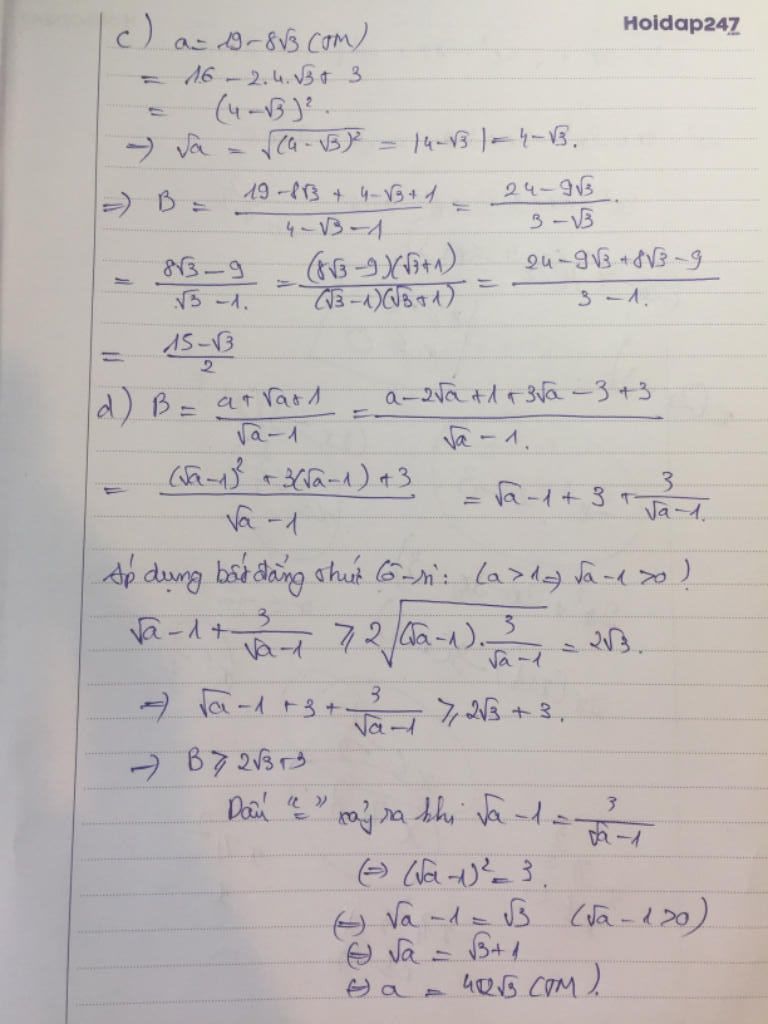 Hoidap247
c) a = 19 - 8√3 (TM)
= 16 - 2.4.√3 + 3
= (4-√3)².
→ √a = √((4-√3)²) = |4-√3| = 4-√3.
⇒ B = (19-8√3 + 4-√3+1)/(4-√3-1) = (24-9√3)/(3-√3).
= (8√3-9)/(√3-1.) = ((8√3-9)(√3+1))/((√3-1)(√3+1)) = (24-9√3+8√3-9)/(3-1.)
= (15-√3)/2
d) B = (a+√a+1)/(√a-1) = (a-2√a+1+3√a-3+3)/(√a-1.)
= ((√a-1)² + 3(√a-1) + 3)/(√a-1) = √a-1+3+3/(√a-1.)
Áp dụng bất đẳng thức Cô-si: (a>1 ⇒ √a-1>0)
√a-1+3/(√a-1) ⩾ 2√((√a-1).3/(√a-1)) = 2√3.
⇒ √a-1+3+3/(√a-1) ⩾ 2√3+3.
→ B ⩾ 2√3+3
Dấu "=" xảy ra khi √a-1 = 3/(√a-1)
⇔ (√a-1)² = 3.
⇔ √a-1 = √3 (√a-1>0)
⇔ √a = √3+1
⇔ a = 2√3 (TM).